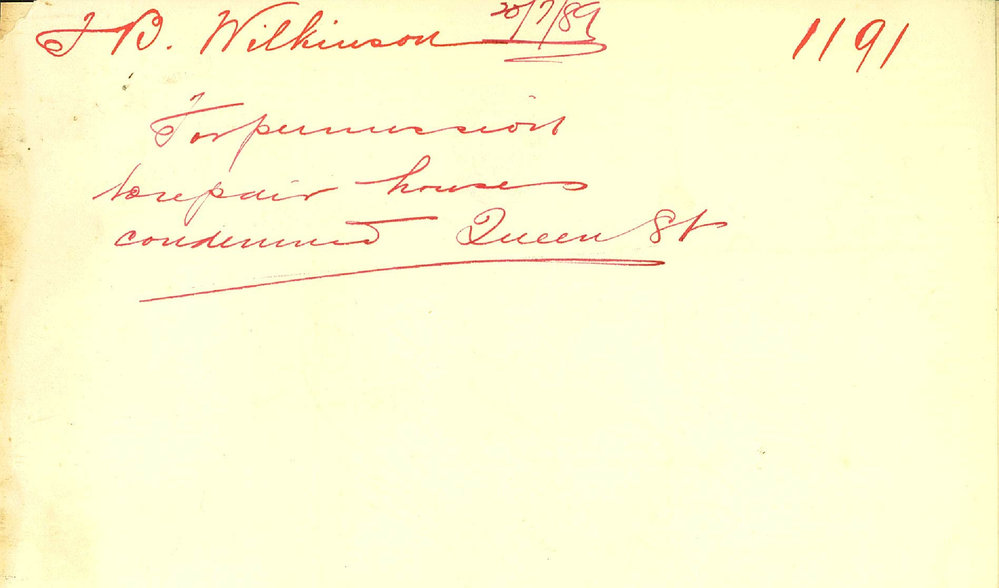 J B. Wilkinson 20/7/89 1191
For permission
to repair houses
condemned Queen St